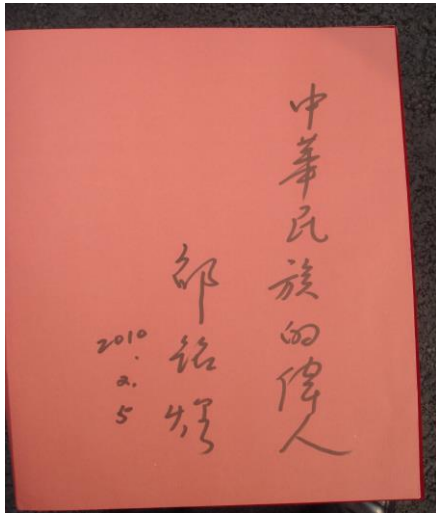 中華民族的偉人
邵銘煌
2010.2.5